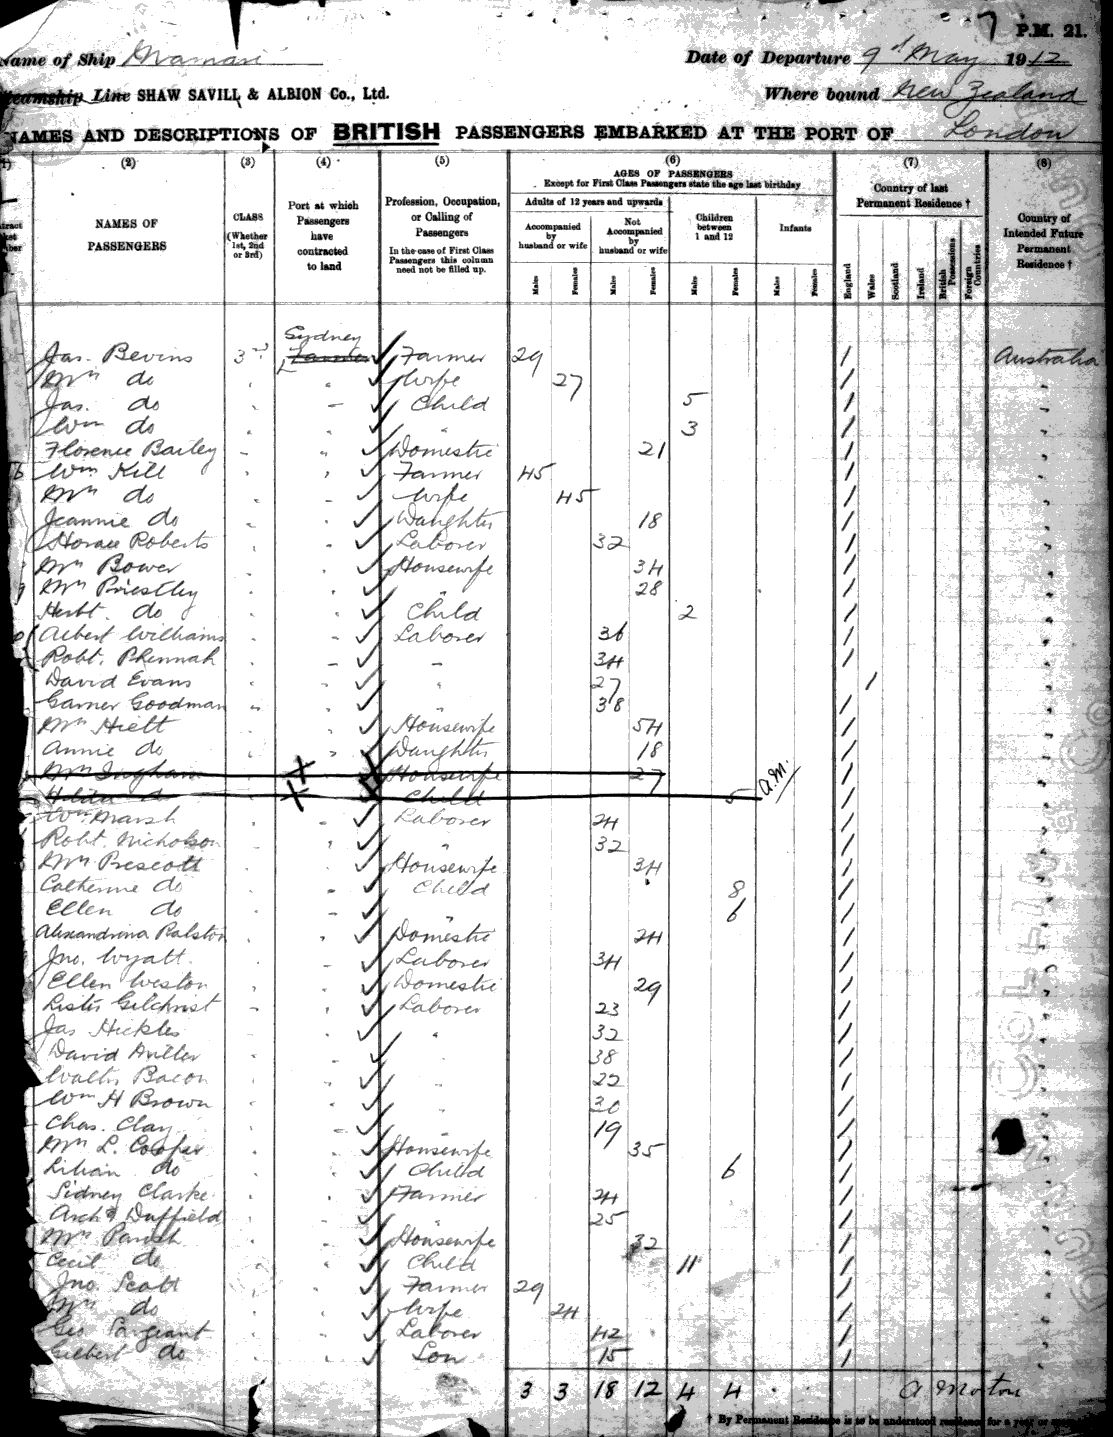 7 P.M. 21.
Name of Ship Date of Departure 9th May 1912
Steamship Line SHAW SAVILL & ALBION Co., Ltd. Where bound New Zealand
NAMES AND DESCRIPTIONS OF BRITISH PASSENGERS EMBARKED AT THE PORT OF London
(2) (3) (4) (5) (6) (7) (8)
NAMES OF PASSENGERS
CLASS (Whether 1st, 2nd or 3rd)
Port at which Passengers have contracted to land
Profession, Occupation, or Calling of Passengers
In the case of First Class Passengers this column need not be filled up.
AGES OF PASSENGERS
Except for First Class Passengers state the age last birthday
Adults of 12 years and upwards
Accompanied by husband or wife
Not Accompanied by husband or wife
Children between 1 and 12
Infants
Males Females Males Females Males Females Males Females
Country of last Permanent Residence †
England Wales Scotland Ireland British Possessions Foreign Countries
Country of Intended Future Permanent Residence †
Sydney
Jas. Bevins 3rd Farmer 29 / Australia
Mrs do " " Wife 27 / "
Jas. do " " Child 5 / "
Wm do " " " 3 / "
Florence Bailey " " Domestic 21 / "
Wm Hill " " Farmer 45 / "
Mrs do " " Wife 45 / "
Jeannie do " " Daughter 18 / "
Horace Roberts " " Laborer 32 / "
Mrs Bower " " Housewife 34 / "
Mrs Priestley " " " 28 / "
Herbt. do " " Child 2 / "
Albert Williams " " Laborer 36 / "
Robt. " " " 34 / "
David Evans " " " 27 / "
Garner Goodman " " " 38 / "
Mrs Hielt " " Housewife 54 / "
Annie do " " Daughter 18 / "
Mrs Ingham X Housewife 27 / "
Hilda do X Child 5 a.m. / "
Wm Marsh " " Laborer 24 / "
Robt. Nicholson " " " 32 / "
Mrs Prescott " " Housewife 34 / "
Catherine do " " Child 8 / "
Ellen do " " " 6 / "
Alexandrina Ralston " " Domestic 24 / "
Jno. Wyatt " " Laborer 34 / "
Ellen Weston " " Domestic 29 / "
Lister Gilchrist " " Laborer 23 / "
Jas Hickles " " " 32 / "
David Miller " " " 38 / "
Walter Bacon " " " 22 / "
Wm H Brown " " " 30 / "
Chas. Clay " " " 19 / "
Mrs L. Cooper " " Housewife 35 / "
Lilian do " " Child 6 / "
Sidney Clarke " " Farmer 24 / "
Archd Duffield " " " 25 / "
Mrs Parish " " Housewife 32 / "
Cecil do " " Child 11 / "
Jno. Scott " " Farmer 29 / "
Mrs do " " Wife 24 / "
Geo Sargeant " " Laborer 42 / "
Gilbert do " " Son 15 / "
3 3 18 12 4 4 A Morton
† By Permanent Residence is to be understood residence for a year or